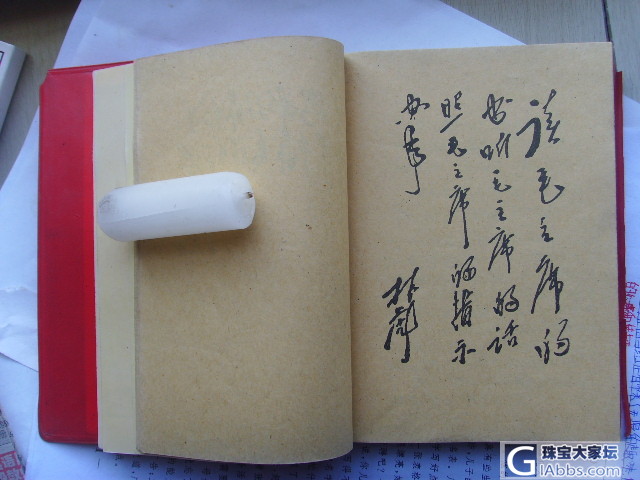 读毛主席的
书听毛主席的话
照毛主席的指示
办事
林彪
珠宝大家坛
GIAbbs.com